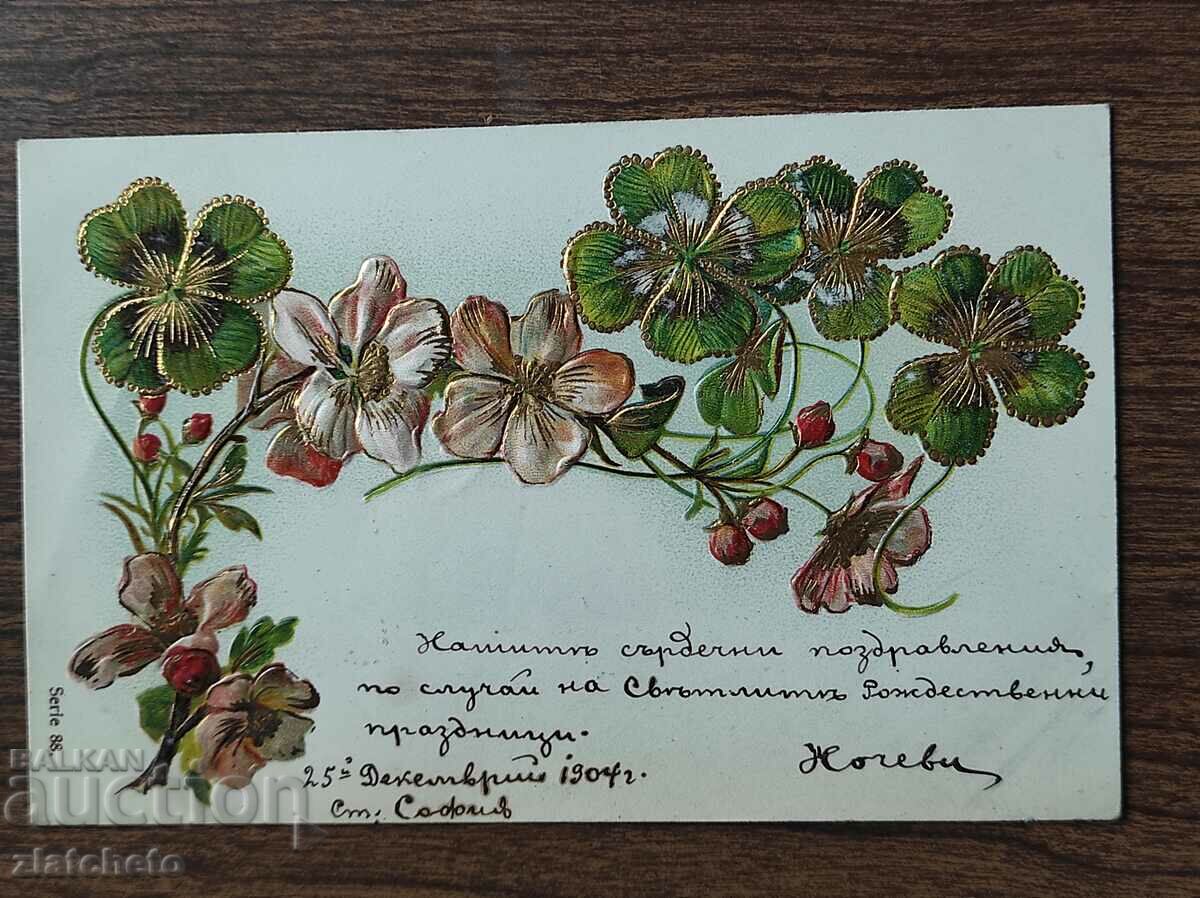 Нашитѣ сърдечни поздравления,
по случай на Свѣтлитѣ Рождественни
праздници.
Кочеви
25й Декемврий 1904 г.
Ст. София
Serie 88.
BALKAN
auction
zlatcheto